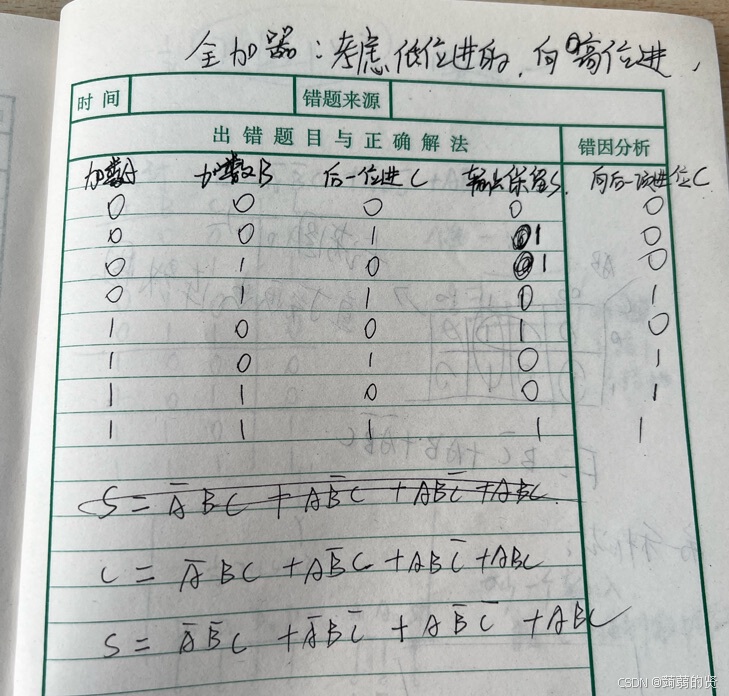 全加器：考虑低位进的，向高位进，
时间 错题来源
出错题目与正确解法 错因分析
加数A 加数B 后一位进C 输出保留S 向后一项进位C
0 0 0 0 0
0 0 1 1 0
0 1 0 1 0
0 1 1 0 1
1 0 0 1 0
1 0 1 0 1
1 1 0 0 1
1 1 1 1 1
S = A̅BC + AB̅C + ABC̅ + ABC
C = A̅BC + AB̅C + ABC̅ + ABC
S = A̅B̅C + A̅BC̅ + AB̅C̅ + ABC
CSDN @蒟蒻的贤